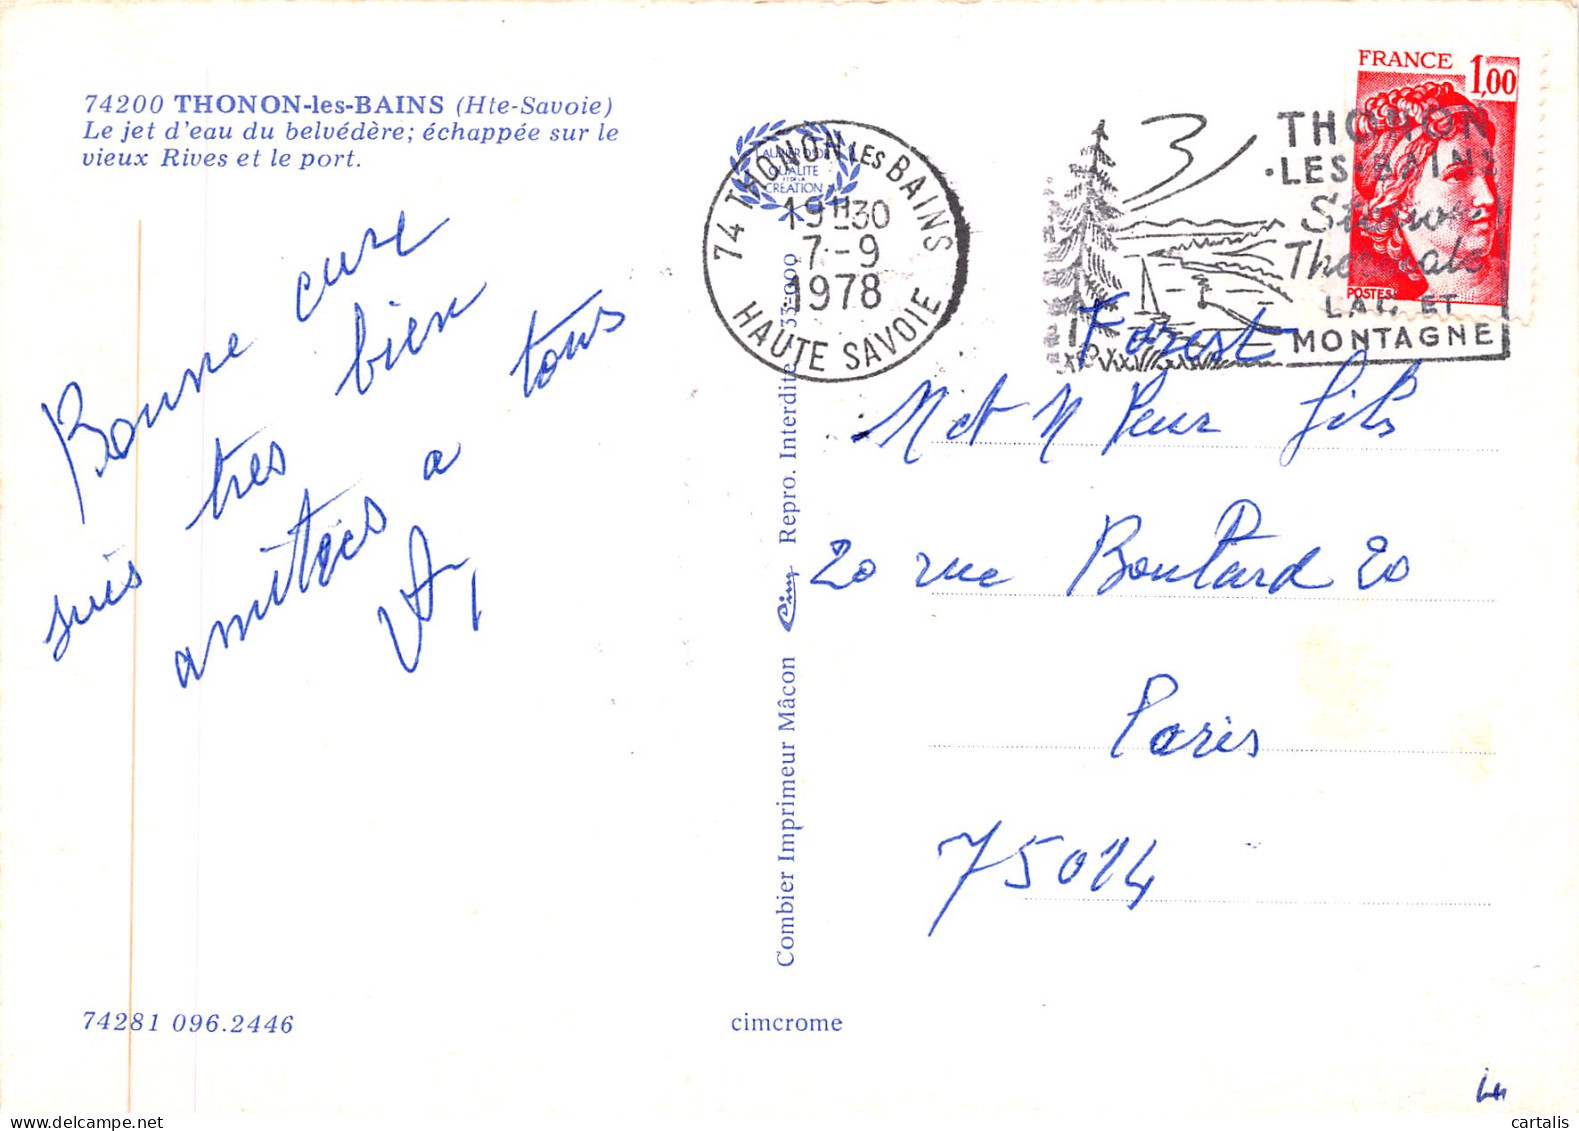 74200 THONON-les-BAINS (Hte-Savoie)
Le jet d'eau du belvédère; échappée sur le
vieux Rives et le port.
Bonne cure
suis tres bien
amitées a tous
LAURIER D'OR
QUALITE
ET DE LA
CREATION
74 THONON LES BAINS
19H30
7-9
1978
HAUTE SAVOIE
THONON
·LES-BAINS
Station
Thermale
LAC ET
MONTAGNE
FRANCE 1,00
POSTES
Forest
M et M Pour fils
20 rue Boulard 20
Paris
75014
Combier Imprimeur Mâcon Cim Repro. Interdite 33-000
74281 096.2446
cimcrome
© cartalis